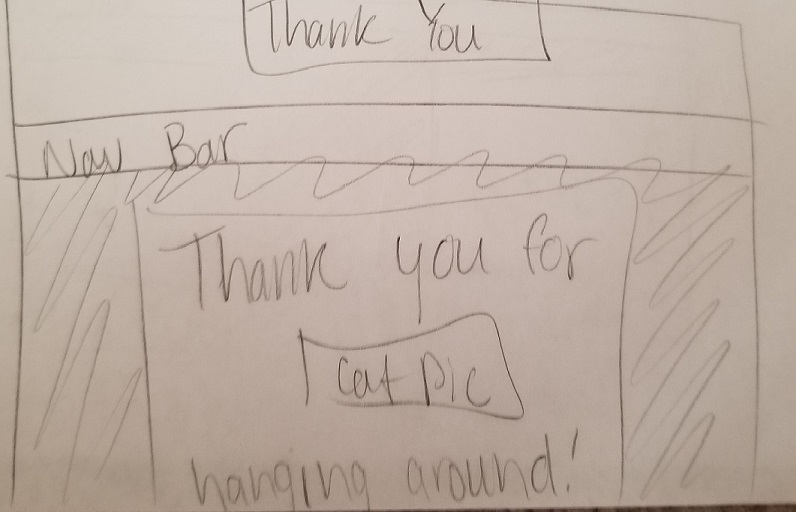 Thank You
Nav Bar
Thank you for
Cat Pic
hanging around!